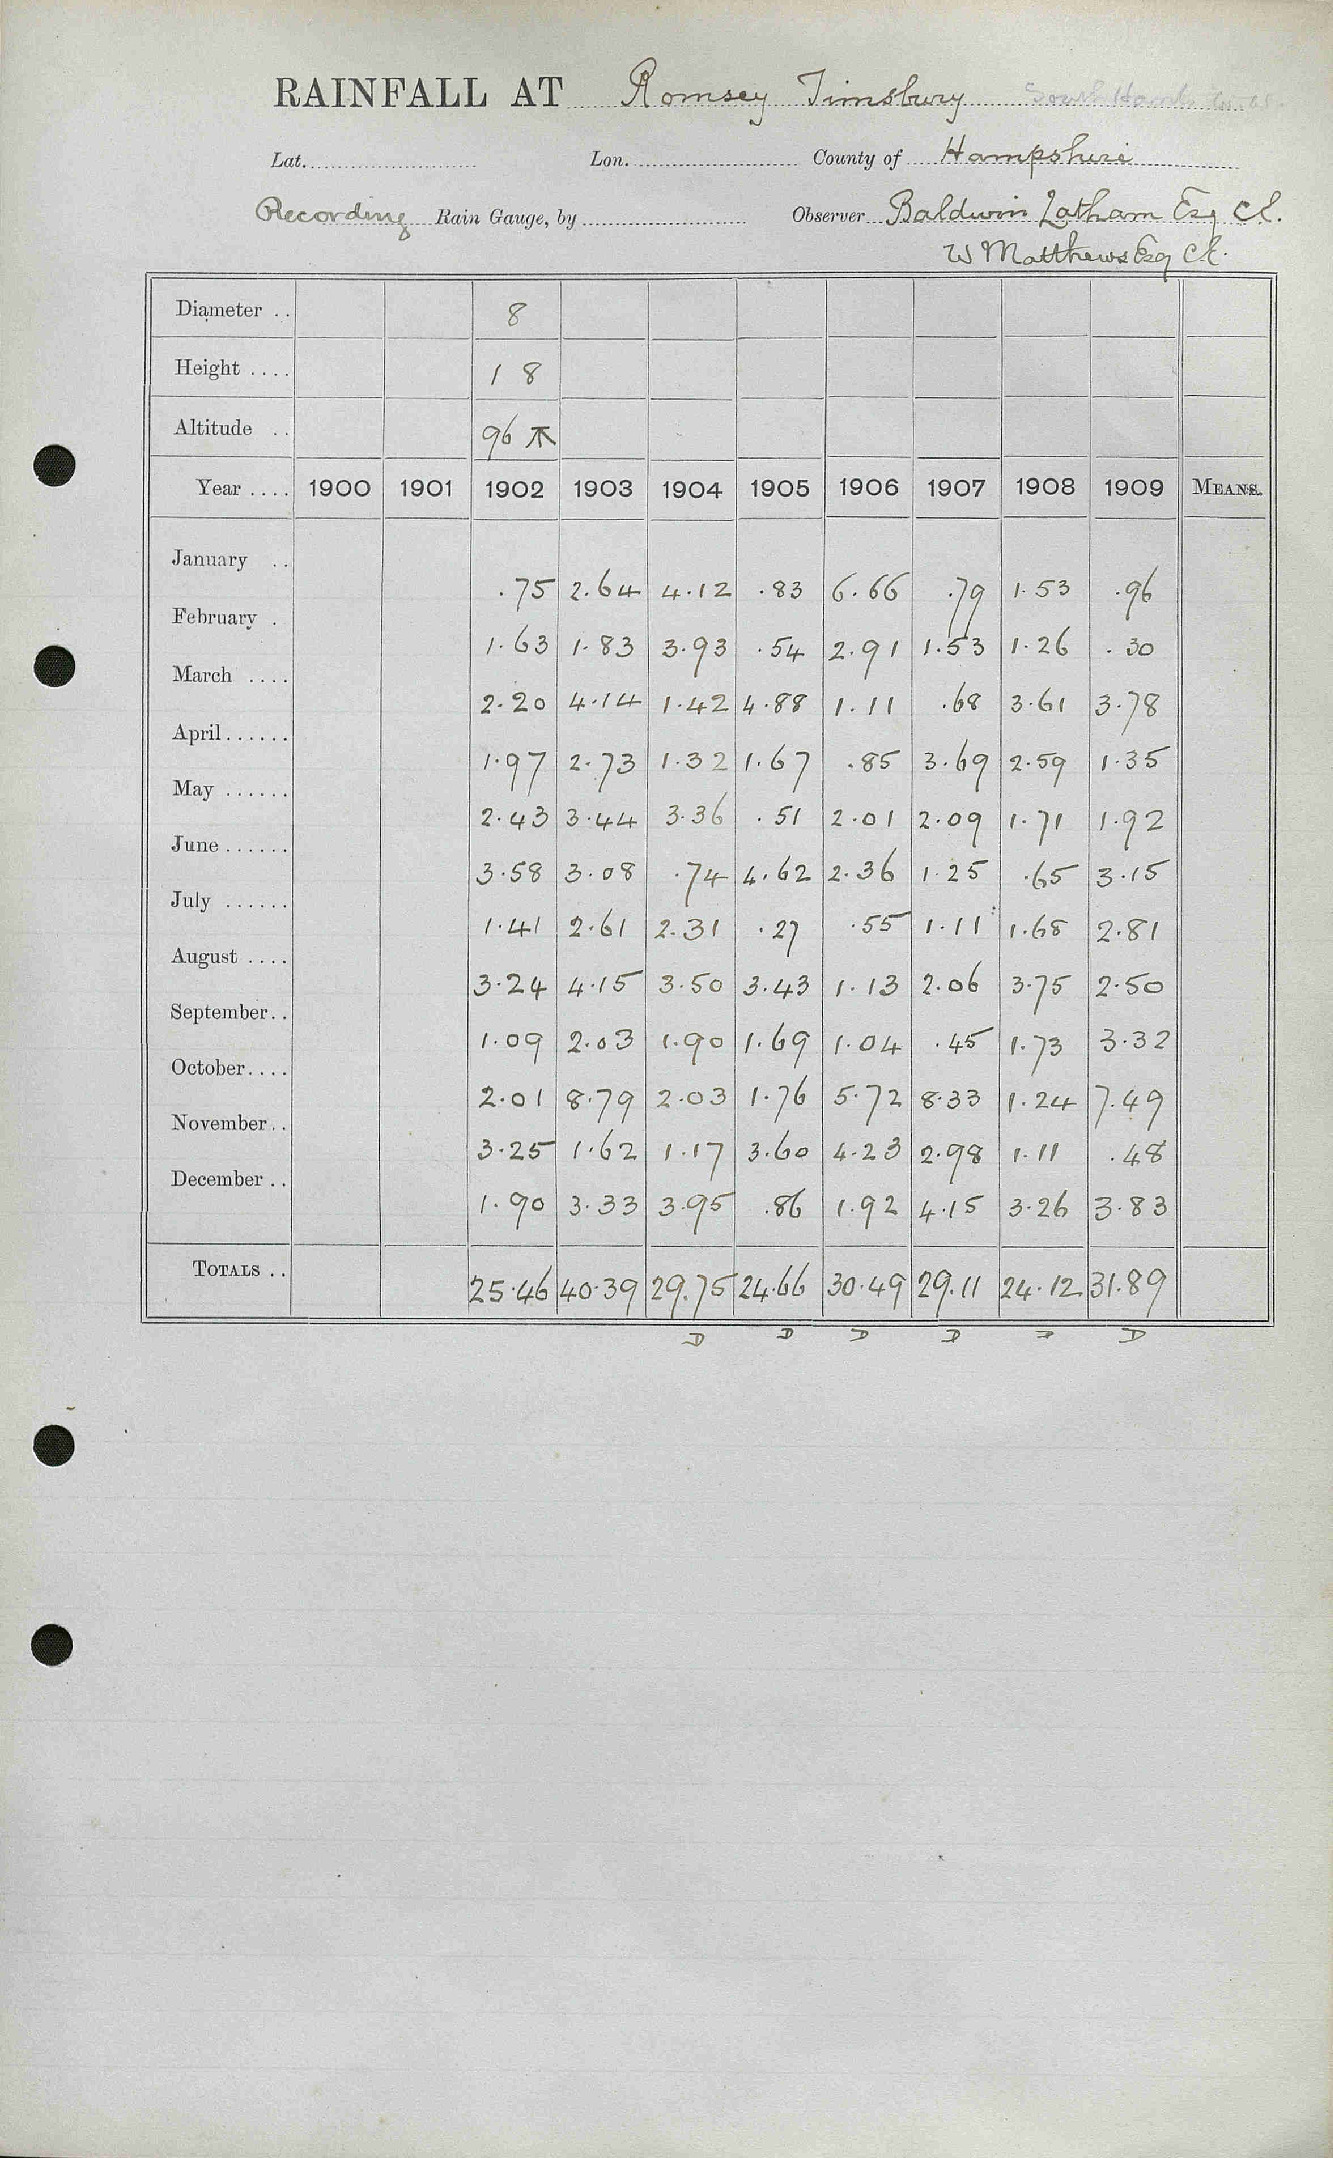 RAINFALL AT Romsey Timsbury South Hants
Lat. Lon. County of Hampshire
Recording Rain Gauge, by Observer Baldwin Latham Esq C.E.
W Matthews Esq C.E.
Diameter .. 8
Height .... 1 8
Altitude .. 96
Year .... 1900 1901 1902 1903 1904 1905 1906 1907 1908 1909 MEANS.
January .. .75 2.64 4.12 .83 6.66 .79 1.53 .96
February . 1.63 1.83 3.93 .54 2.91 1.53 1.26 .30
March .... 2.20 4.14 1.42 4.88 1.11 .68 3.61 3.78
April...... 1.97 2.73 1.32 1.67 .85 3.69 2.59 1.35
May ...... 2.43 3.44 3.36 .51 2.01 2.09 1.71 1.92
June ...... 3.58 3.08 .74 4.62 2.36 1.25 .65 3.15
July ...... 1.41 2.61 2.31 .27 .55 1.11 1.68 2.81
August .... 3.24 4.15 3.50 3.43 1.13 2.06 3.75 2.50
September.. 1.09 2.03 1.90 1.69 1.04 .45 1.73 3.32
October.... 2.01 8.79 2.03 1.76 5.72 8.33 1.24 7.49
November.. 3.25 1.62 1.17 3.60 4.23 2.98 1.11 .48
December .. 1.90 3.33 3.95 .86 1.92 4.15 3.26 3.83
TOTALS .. 25.46 40.39 29.75 24.66 30.49 29.11 24.12 31.89
D D D D D D